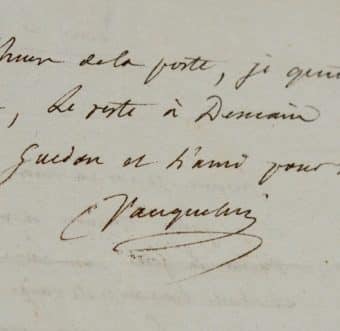 heure de la poste, je quit
, le reste à Demain
Guedon et l'ami pour
Vauquelin